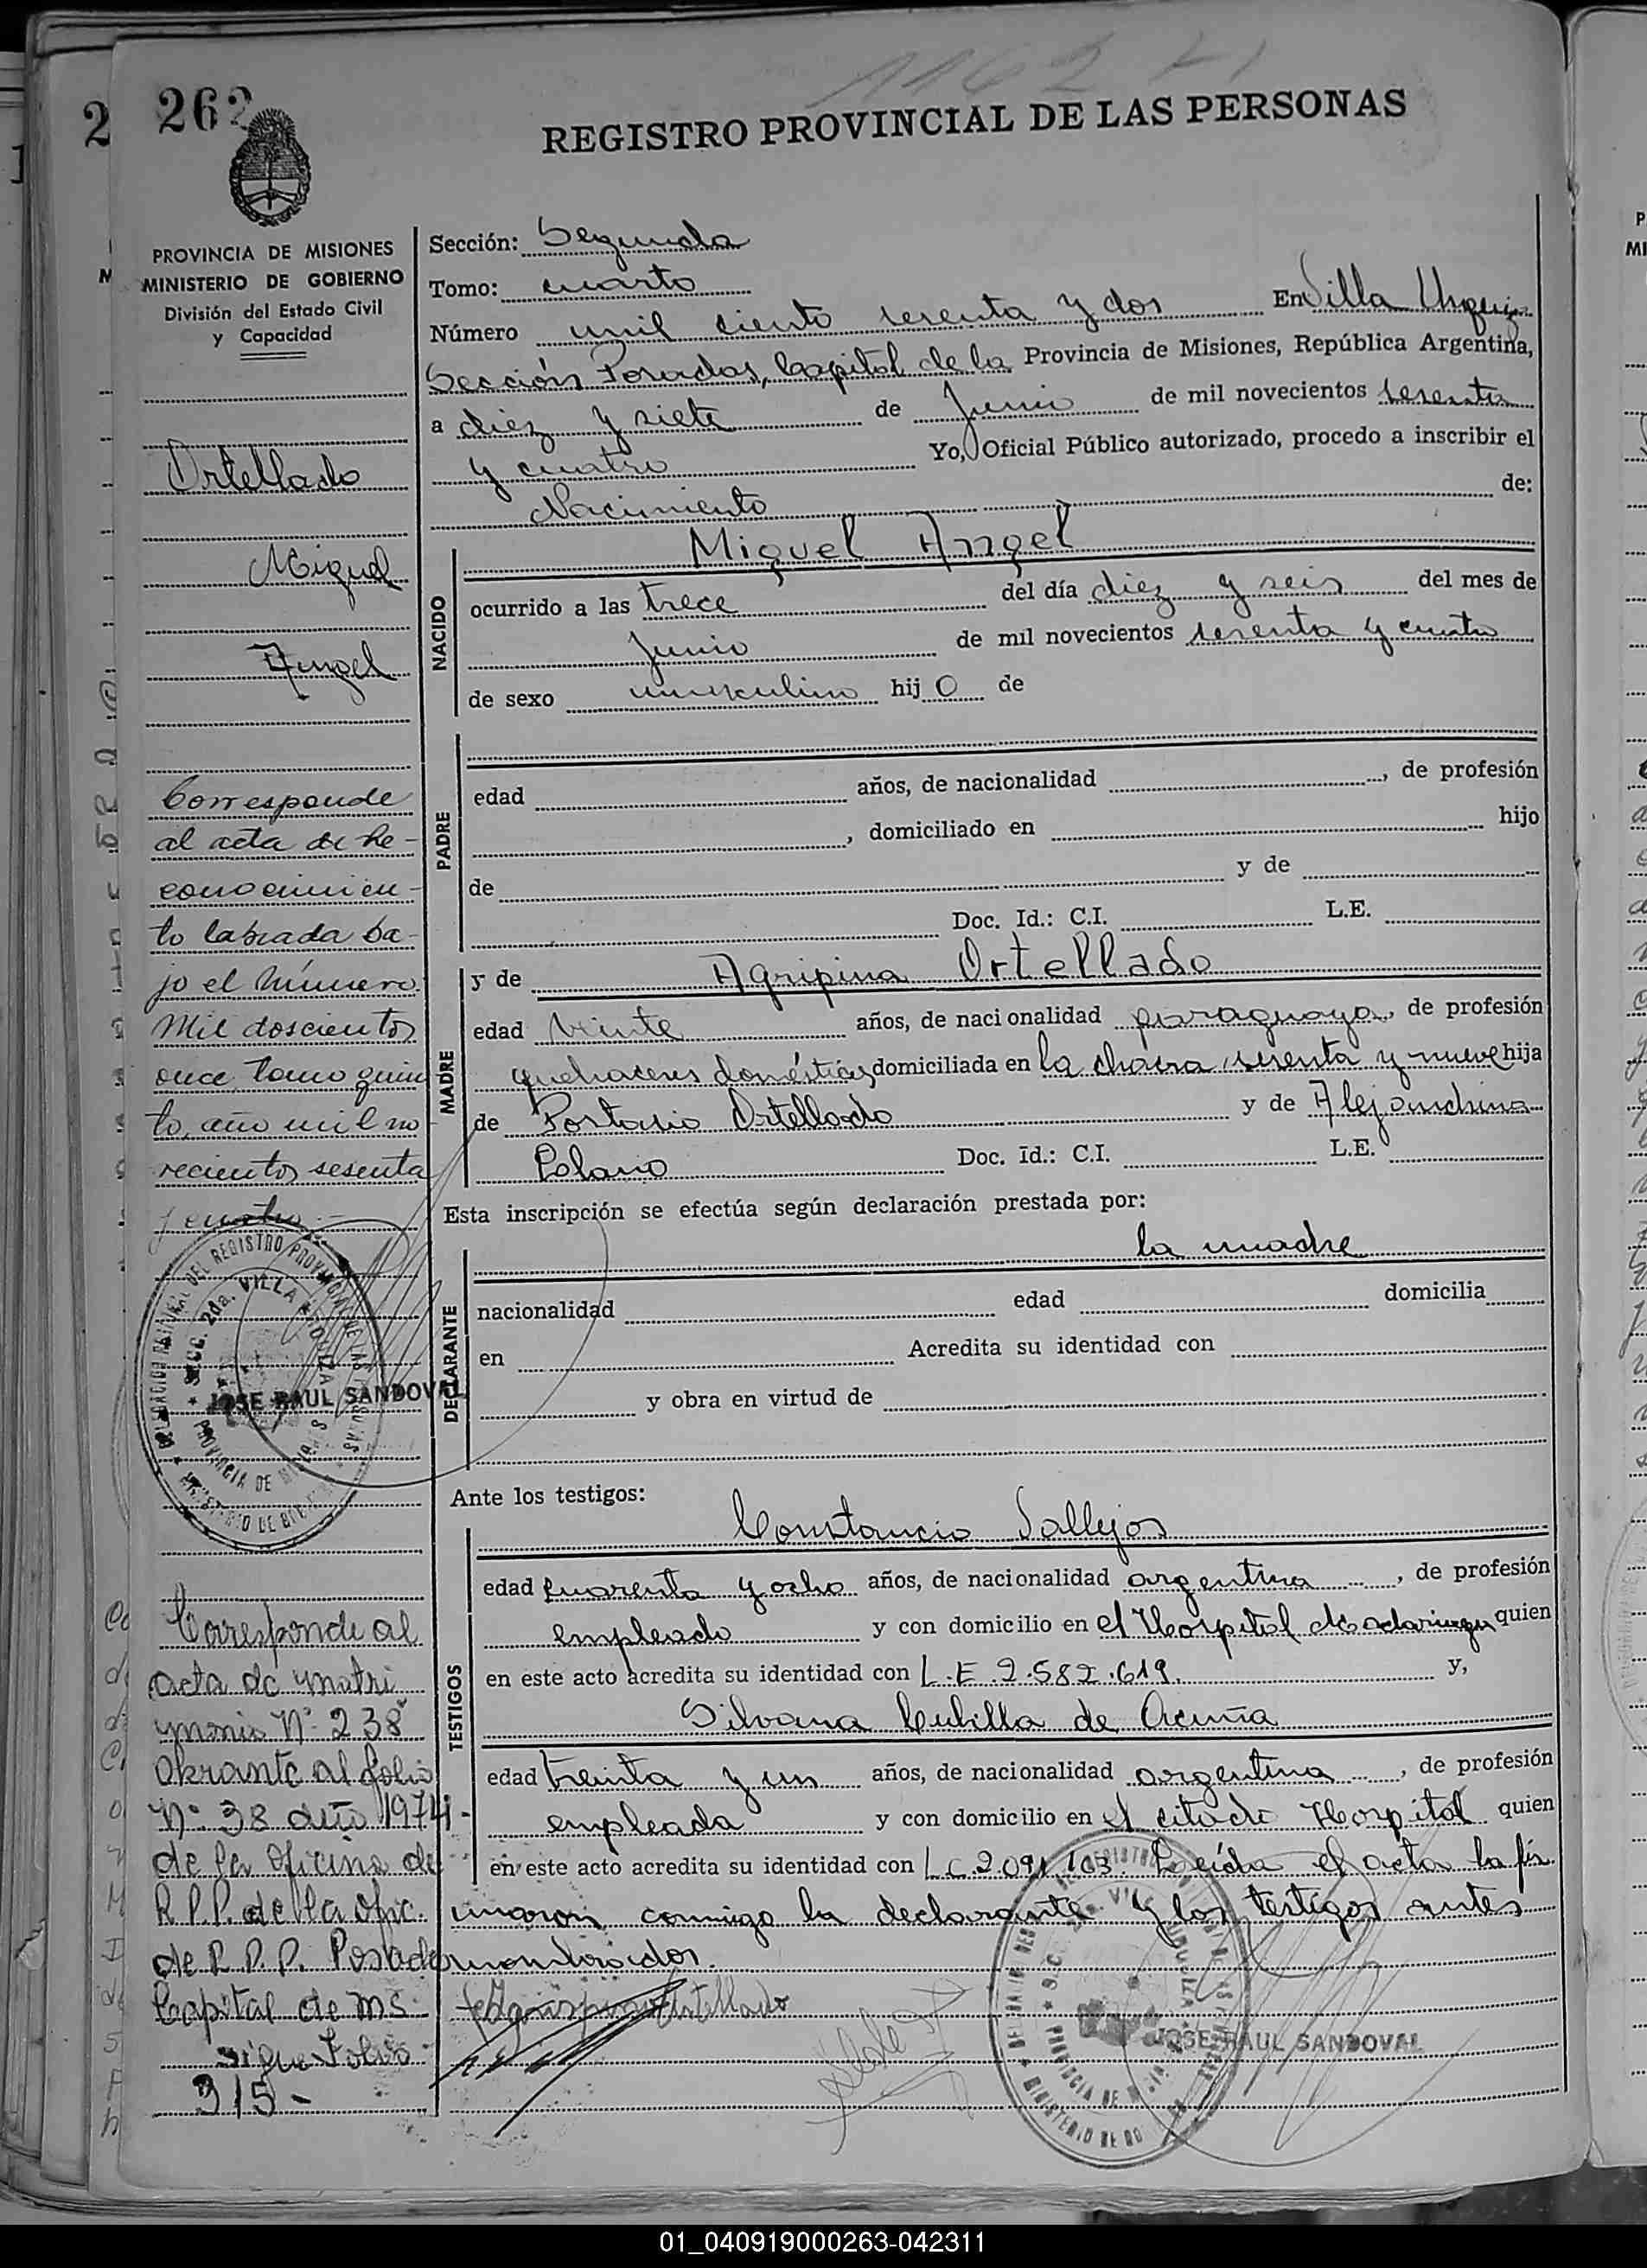 262
REGISTRO PROVINCIAL DE LAS PERSONAS
PROVINCIA DE MISIONES
MINISTERIO DE GOBIERNO
División del Estado Civil
y Capacidad
Ortellado
Miguel
Angel
Corresponde
al acta de Re-
conocimien-
to labrada ba-
jo el Número
Mil doscientos
once, Tomo quin
to, año mil no
vecientos sesenta
y cuatro.-
DEL REGISTRO PROVINCIAL DE LAS PERSONAS
SECC. 2da. VILLA URQUIZA
PROVINCIA DE MISIONES
JOSE RAUL SANDOVAL
Corresponde al
acta de matri
monio Nº 238
obrante al folio
Nº 38 año 1974-
de la oficina de
R.P.P. de la ofic.
de R.P.P. Posadas
Capital de ms.
sigue Folio
315-
Sección: Segunda
Tomo: cuarto
Número mil ciento sesenta y dos En Villa Urquiza
Sección Posadas, Capital de la Provincia de Misiones, República Argentina,
a diez y siete de Junio de mil novecientos sesenta
y cuatro Yo, Oficial Público autorizado, procedo a inscribir el
Nacimiento de:
NACIDO
Miguel Angel
ocurrido a las trece del día diez y seis del mes de
Junio de mil novecientos sesenta y cuatro
de sexo masculino hijo de
PADRE
edad años, de nacionalidad , de profesión
, domiciliado en hijo
de y de
Doc. Id.: C.I. L.E.
MADRE
y de Agripina Ortellado
edad veinte años, de nacionalidad paraguaya, de profesión
quehaceres domésticos domiciliada en la chacra sesenta y nueve hija
de Ortellado y de Alejandrina
Doc. Id.: C.I. L.E.
Esta inscripción se efectúa según declaración prestada por:
DECLARANTE
la madre
nacionalidad edad domicilia
en Acredita su identidad con
y obra en virtud de
Ante los testigos:
TESTIGOS
Constancio Vallejos
edad cuarenta y ocho años, de nacionalidad argentina, de profesión
empleado y con domicilio en el Hospital Madariaga quien
en este acto acredita su identidad con L.E. 2.582.619. y,
Silvana Cubilla de Acuña
edad treinta y un años, de nacionalidad argentina, de profesión
empleada y con domicilio en el citado Hospital quien
en este acto acredita su identidad con L.C. 2.091.103. Leída el acta la fir
maron conmigo la declarante y los testigos antes
nombrados.
Agripina Ortellado
JOSE RAUL SANDOVAL
01_040919000263-042311